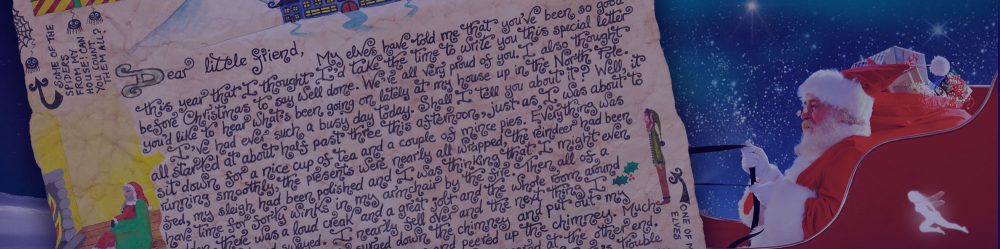 SOME OF THE
SPIDERS
FROM MY
HOUSE. CAN
YOU COUNT
THEM ALL?
Dear little friend, My elves have told me that you've been so good
this year that I thought I'd take the time to write you this special letter
before Christmas to say well done. We're all very proud of you. I also thought
you'd like to hear what's been going on lately at my house up in the North Pole.
I've had ever such a busy day today. Shall I tell you about it? Well, it
all started at about half past three this afternoon, just as I was about to
sit down for a nice cup of tea and a couple of mince pies. Everything was
running smoothly, the presents were nearly all wrapped, the reindeer had been
fed, my sleigh had been polished and I was thinking that I might even
have time for forty winks in my armchair by the fire. Then, all of
sudden there was a loud creak and a great jolt and the whole room around
I nearly fell over and the next thing I
down the chimney and put out my
and peered up the chimney. Much
at the other end.
trouble
ONE OF M
ELVES